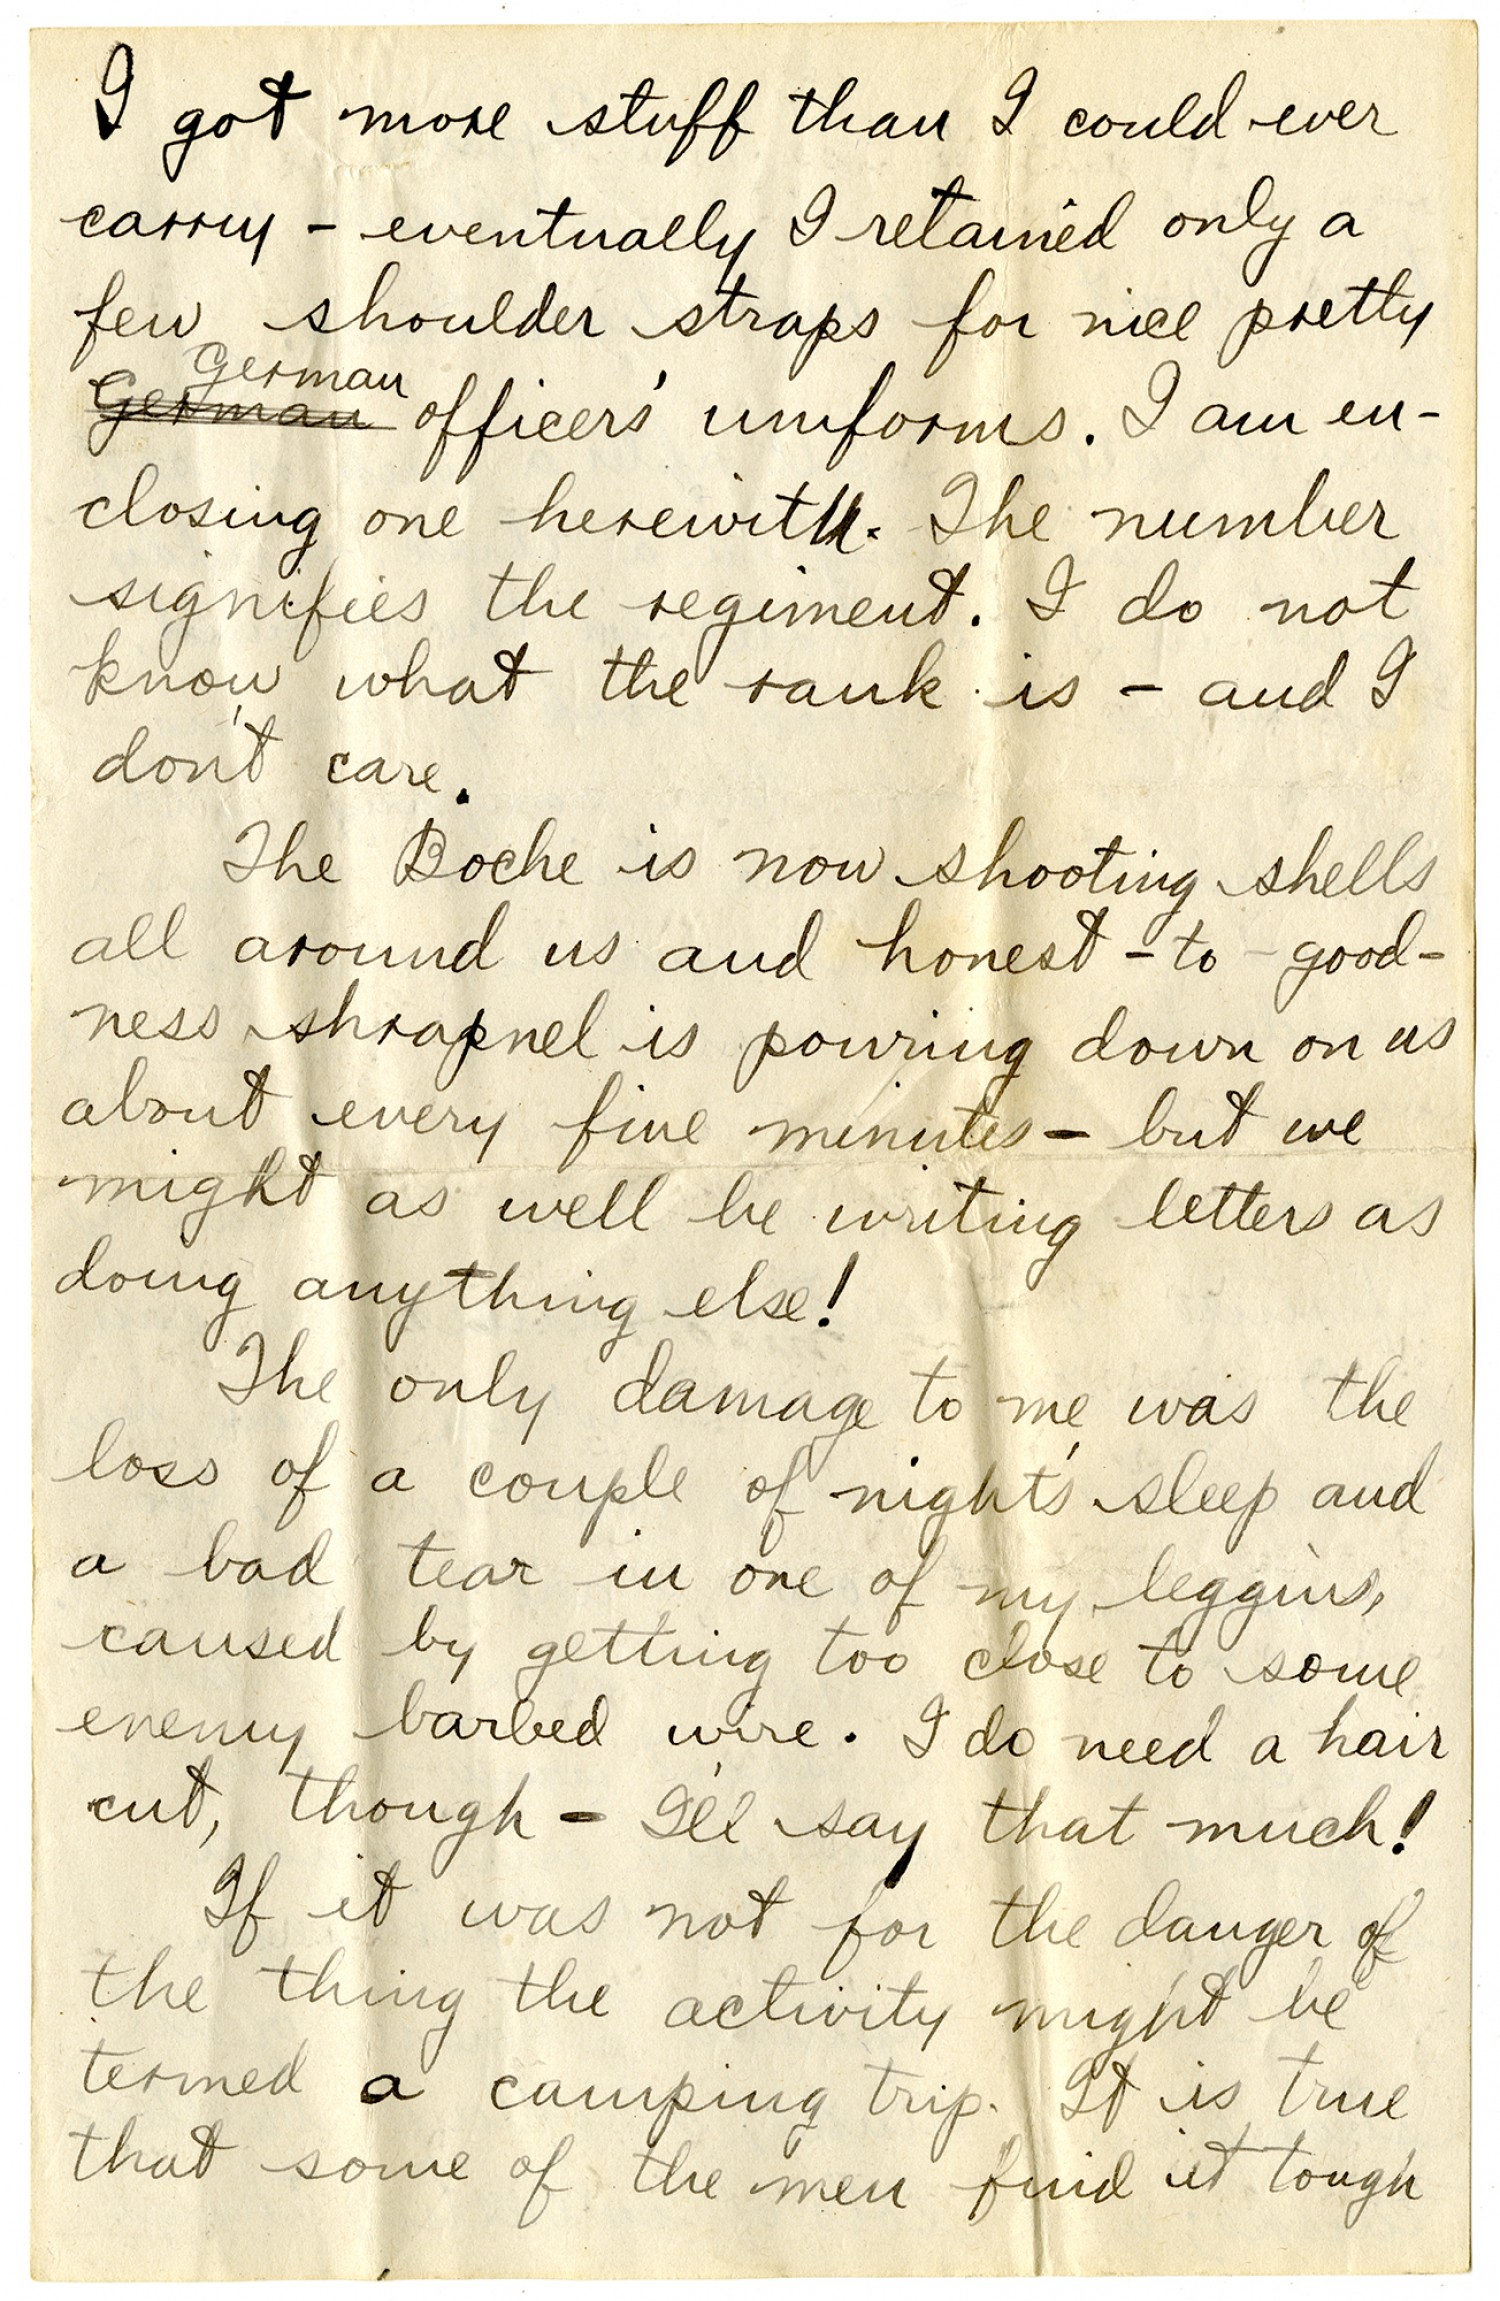 I got more stuff than I could ever
carry - eventually I retained only a
few shoulder straps for nice pretty
German
German officers' uniforms. I am en-
closing one herewith. The number
signifies the regiment. I do not
know what the rank is - and I
don't care.
The Boche is now shooting shells
all around us and honest-to-good-
ness shrapnel is pouring down on us
about every five minutes - but we
might as well be writing letters as
doing anything else!
The only damage to me was the
loss of a couple of night's sleep and
a bad tear in one of my leggins,
caused by getting too close to some
enemy barbed wire. I do need a hair
cut, though - I'll say that much!
If it was not for the danger of
the thing the activity might be
termed a camping trip. It is true
that some of the men find it tough